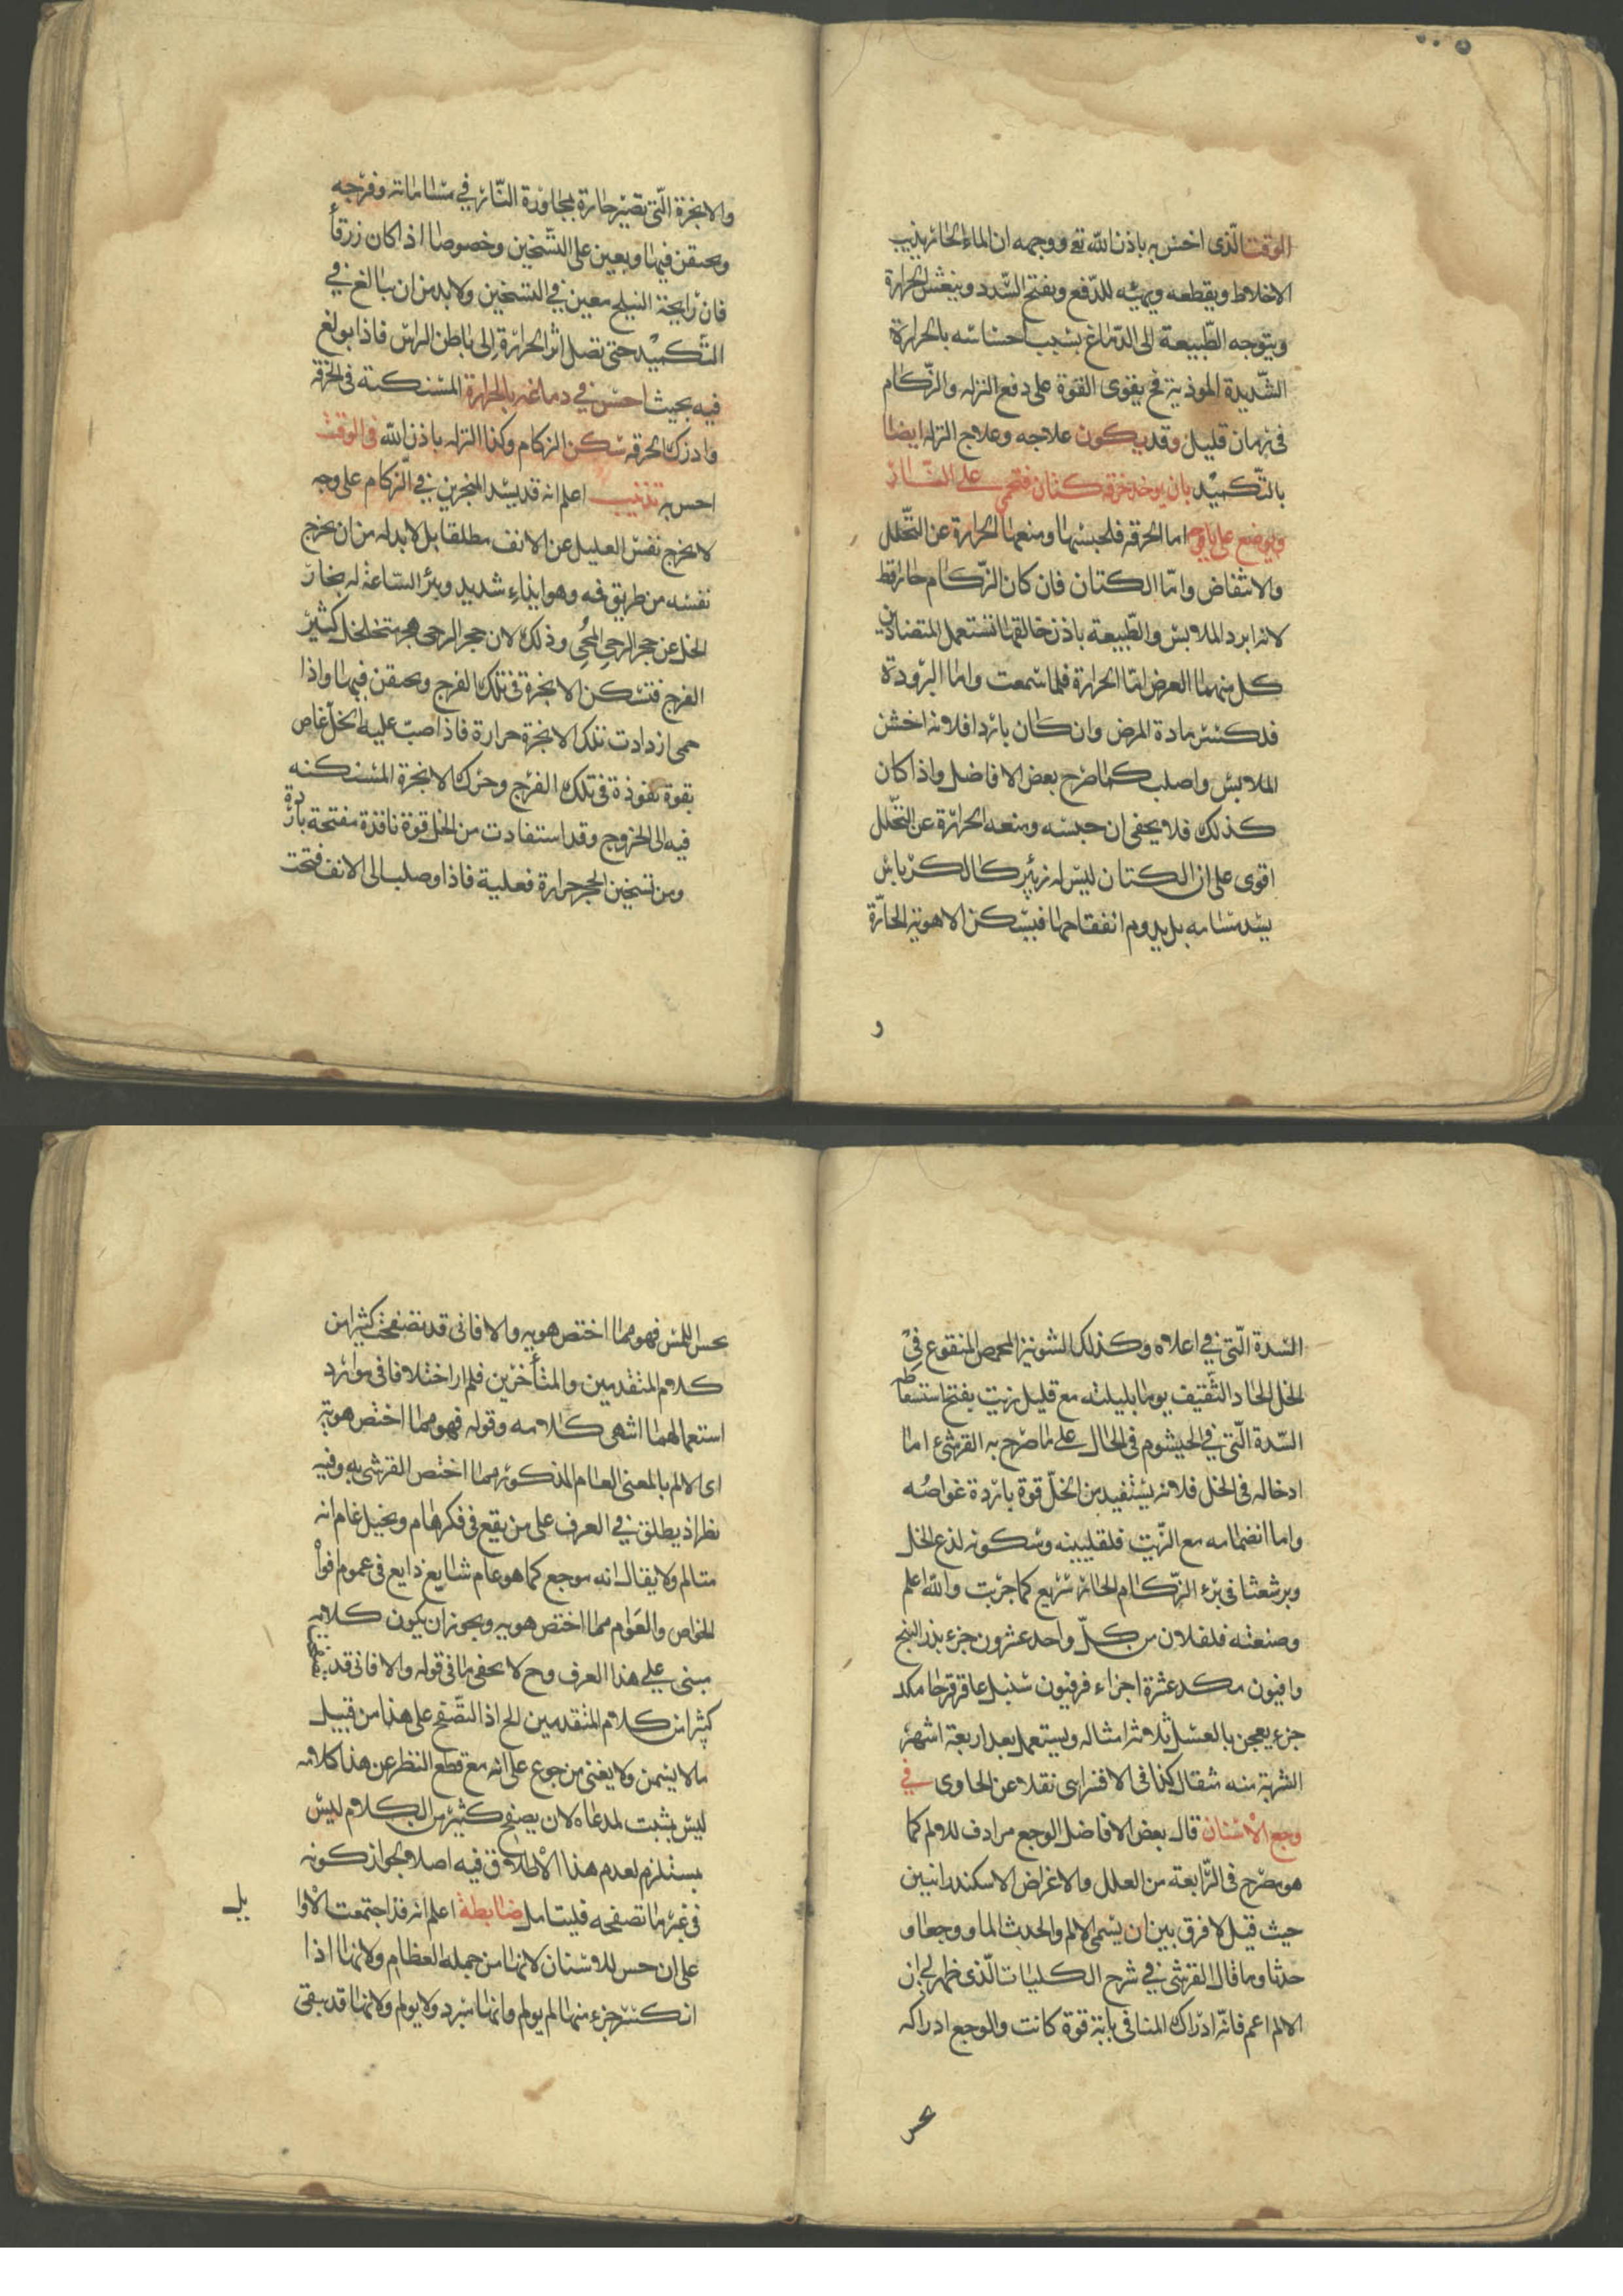 الوقت الذى احسن به باذن الله تع ووجهه ان الماء الحار يذيب
الاخلاط ويقطعه ويهيئه للدفع ويفتح السدد وينعش الحرارة
ويتوجه الطبيعة الى الدماغ بسبب احساسه بالحرارة
الشديدة الموذية فح يقوى القوة على دفع النزله والزكام
فى زمان قليل وقد يكون علاجه وعلاج النزله ايضا
بالتكميد بان يوخذ خرقه كتان فتحمى على النار
ويوضع على يافوخه اما الخرقه فلحبسها ومنعها الحرارة عن التحلل
والانتفاض واما الكتان فان كان الزكام حار فقط
لانه ابرد الملابس والطبيعة باذن خالقها تستعمل المتضادين
كل منهما العرض اما الحرارة فلما سمعت واما البرودة
فلكسر مادة المرض وان كان باردا فلانه اخشن
الملابس واصلب كما صرح بعض الافاضل واذا كان
كذلك فلا يخفى ان حبسه ومنعه الحرارة عن التحلل
اقوى على ان الكتان ليس له زئبر كالكرباس
يسد مسامه بل يدوم انفتاحها فيسكن الاهوية الحارة
و
والابخرة التى تصير حارة بمجاورة النار فى مسامانه وفرجه
ويحتقن فيها ويعين على التسخين وخصوصا اذا كان زرقا
فان رايحة النيلج معين فى التسخين ولا بد من ان يبالغ فى
التكميد حتى تصل اثر الحرارة الى باطن الراس فاذا بولغ
فيه بحيث احس فى دماغه بالحرارة المستكنة فى الخرقه
وادرك الحرقه سكن الزكام وكذا النزله باذن الله فى الوقت
احس به تذنيب اعلم انه قد يسد المنخرين فى الزكام على وجه
لا يخرج نفس العليل عن الانف مطلقا بل لا بد له من ان يخرج
نفسه من طريق فمه وهو ايذاء شديد وبرء الساعة له بخار
الخل عن حجر الرحى المحمى وذلك لان حجر الرحى هو متخلخل كثير
الفرج فتسكن الابخرة فى تلك الفرج ويحتقن فيها واذا
حمى ازدادت تلك الابخرة حرارة فاذا صب عليه الخل غاص
بقوة نفوذه فى تلك الفرج وحرك الابخرة المستكنه
فيه الى الخروج وقد استفادت من الخل قوة نافذة مفتحة باردة
ومن تسخين الحجر حرارة فعلية فاذا وصلت الى الانف فتحت
السدة التى فى اعلاه وكذلك الشونيز المحمص المنقوع فى
الخل الحاد الثقيف يوما بليلته مع قليل زيت يفتح استنشاقه
السدة التى فى الخيشوم فى الحال على ما صرح به القرشى اما
ادخاله فى الخل فلانه يستفيد من الخل قوة باردة غواصه
واما انضمامه مع الزيت فلتليينه وسكونه لذع الخل
وبرشعثا فى برء الزكام الحار سريع كما جربت والله اعلم
وصنعته فلفلان من كل واحد عشرون جزء بذر البنج
وافيون مكد عشرة اجزاء فرفيون سنبل عاقرقرحا مكد
جزء يعجن بالعسل ثلاثة امثاله ويستعمل بعد اربعة اشهر
الشربة منه مثقال كذا فى الاقسرايى نقلا عن الحاوى فى
وجع الاسنان قال بعض الافاضل الوجع مرادف للالم كما
هو مصرح فى الرابعة من العلل والاعراض الاسكندرانيين
حيث قيل لا فرق بين ان يسمى الالم والحدث الما ووجعا و
حدثا وما قال القرشى فى شرح الكليات الذى ظهر لى ان
الالم اعم فانه ادراك المنافى باية قوة كانت والوجع ادراكه
بحس اللمس فهو مما اختص هو به والا فانى قد تصفحت كثيرا من
كلام المتقدمين والمتأخرين فلم ار اختلافا فى موارد
استعمالهما انتهى كلامه وقوله فهو مما اختص هو به
اى الالم بالمعنى العام المذكور مما اختص القرشى به وفيه
نظر اذ يطلق فى العرف على من يقع فى فكر هام ويخيل غام انه
متالم ولا يقال انه موجع كما هو عام شايع ذايع فى عموم افواه
الخواص والعوام مما اختص هو به ويجوز ان يكون كلامه
مبنى على هذا العرف وح لا يخفى ما فى قوله والا فانى قد تصفحت
كثيرا من كلام المتقدمين الخ اذ التصفح على هذا من قبيل
ما لا يسمن ولا يغنى من جوع على انه مع قطع النظر عن هذا كلامه
ليس بمثبت لمدعاه لان يصفح كثير من الكلام ليس
بمستلزم لعدم هذا الاطلاق فيه اصلا لجواز كونه
فى غير ما تصفحه فليتامل ضابطة اعلم انه قد اجتمعت الاوا
على ان حس للاسنان لانها من جمله العظام ولانها اذا
انكسر جزء منها لم يولم وانها تبرد ولا يولم ولانها قد يبقى